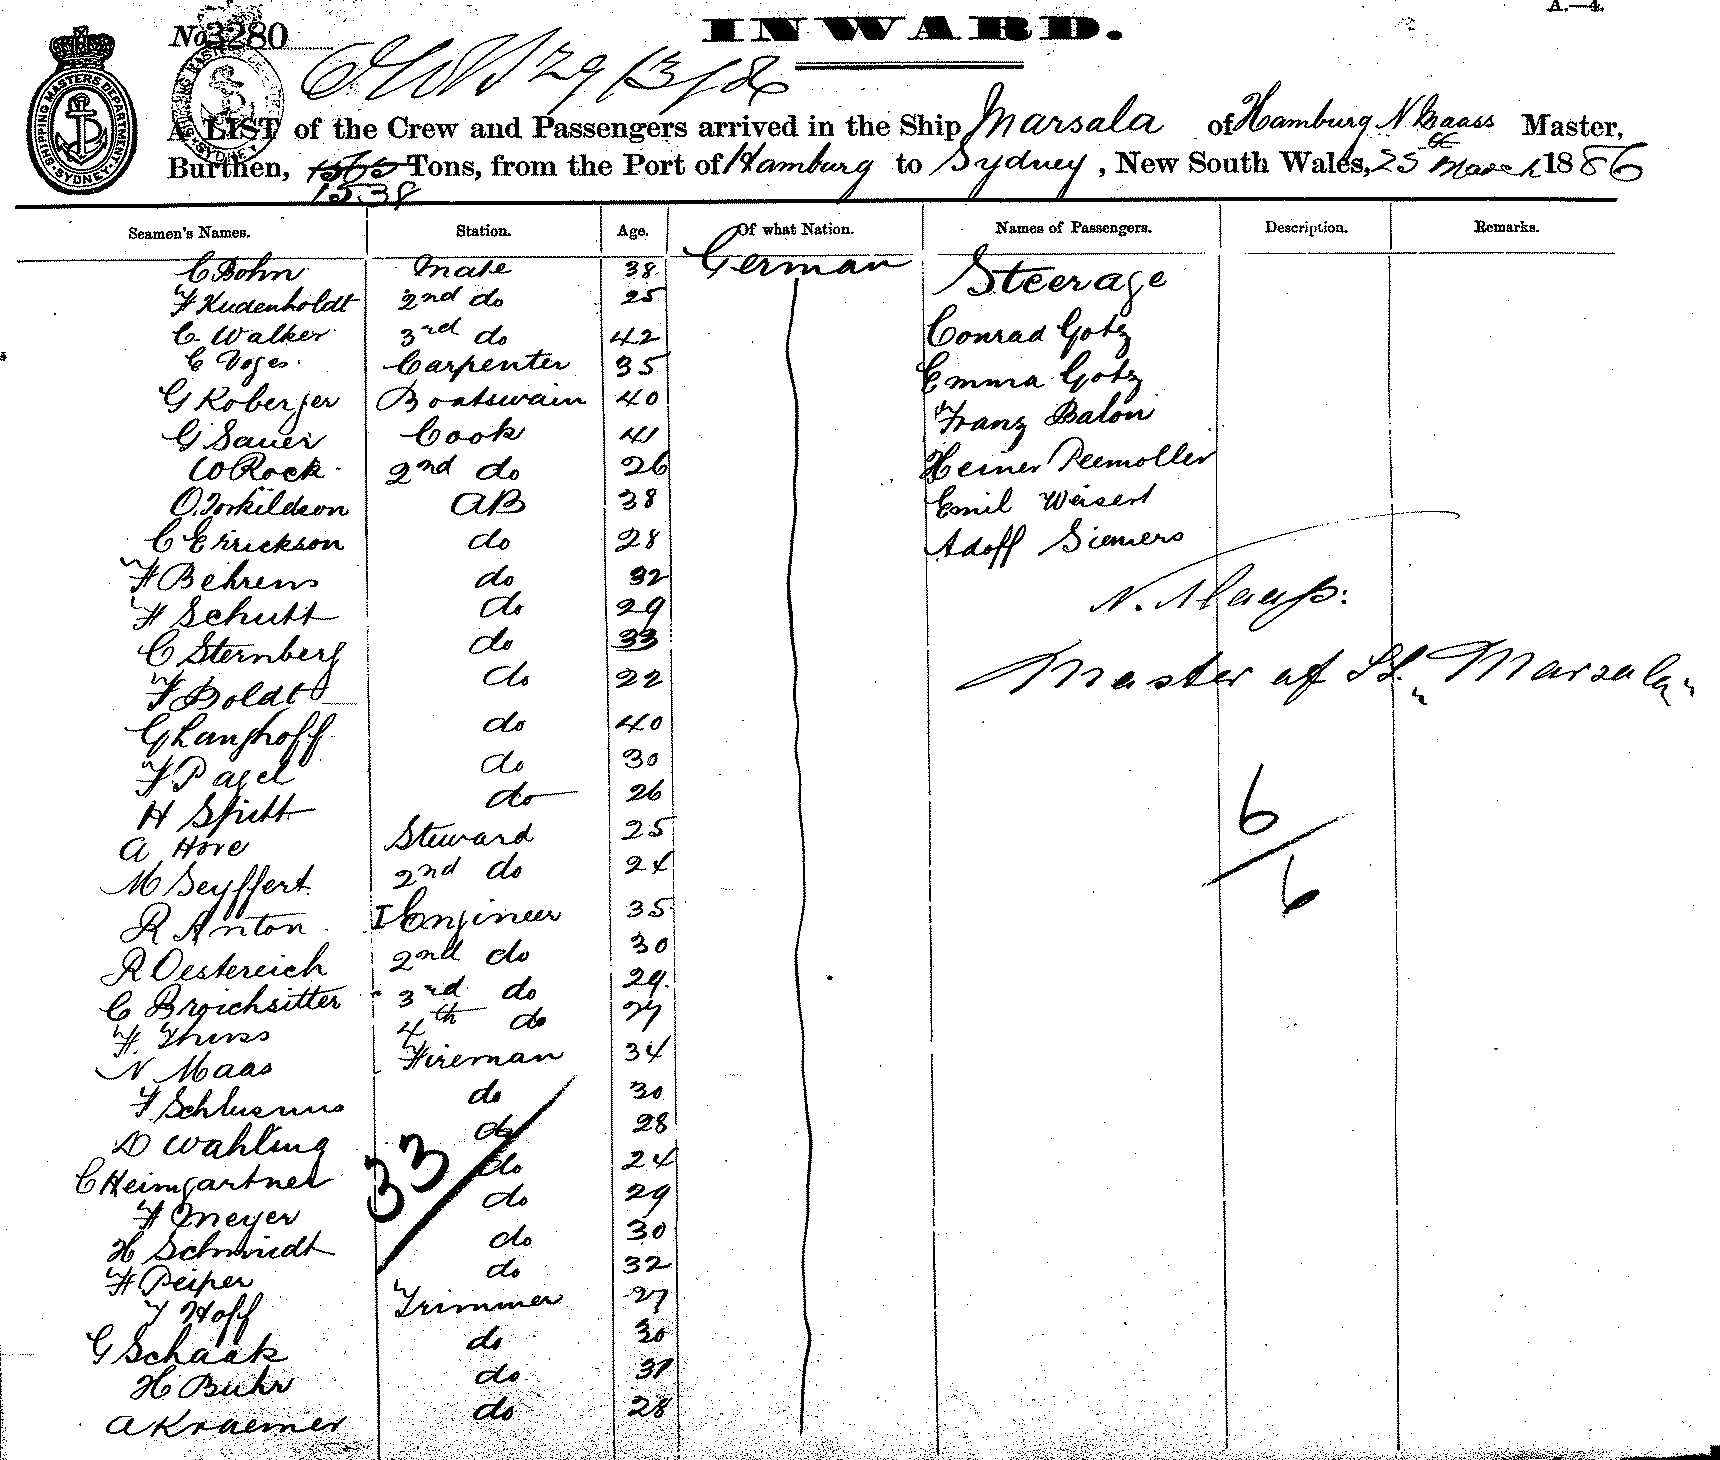 INWARD.
A.—4.
No 3280
29/3/86
SHIPPING MASTERS DEPARTMENT SYDNEY
A LIST of the Crew and Passengers arrived in the Ship Marsala of Hamburg N Maass Master,
Burthen, 1565 Tons, from the Port of Hamburg to Sydney, New South Wales, 25 March 1886
1538
Seamen's Names. Station. Age. Of what Nation. Names of Passengers. Description. Remarks.
C Bohn Mate 38 German Steerage
F Kudenholdt 2nd do 25
C Walker 3rd do 42 Conrad Gotz
C Voges Carpenter 35 Emma Gotz
G Koberger Boatswain 40 Franz Balon
G Sauer Cook 41
W Rock 2nd do 26 Heiner Peemoller
O. Torkildson AB 38 Emil Weisert
C Errickson do 28 Adolf Siemers
H Behrens do 32
H Schutt do 29 N. Maass.
C Sternberg do 33
F Boldt do 22 Master of St. "Marsala"
G Langhoff do 40
F Pagel do 30
H Spitt do 26 6/6
A Hove Steward 25
M Seyffert 2nd do 24
R Anton I Engineer 35
R Oestereich 2nd do 30
C Broichsitter 3rd do 29
H. 4th do 27
N Maas Fireman 34
F do 30
D Wahling do 28
C Heimgartner do 24
33
H Meyer do 29
H Schmidt do 30
H Peiper do 32
J Hoff Trimmer 27
G Schaak do 30
H Buhr do 31
A Kraemer do 28